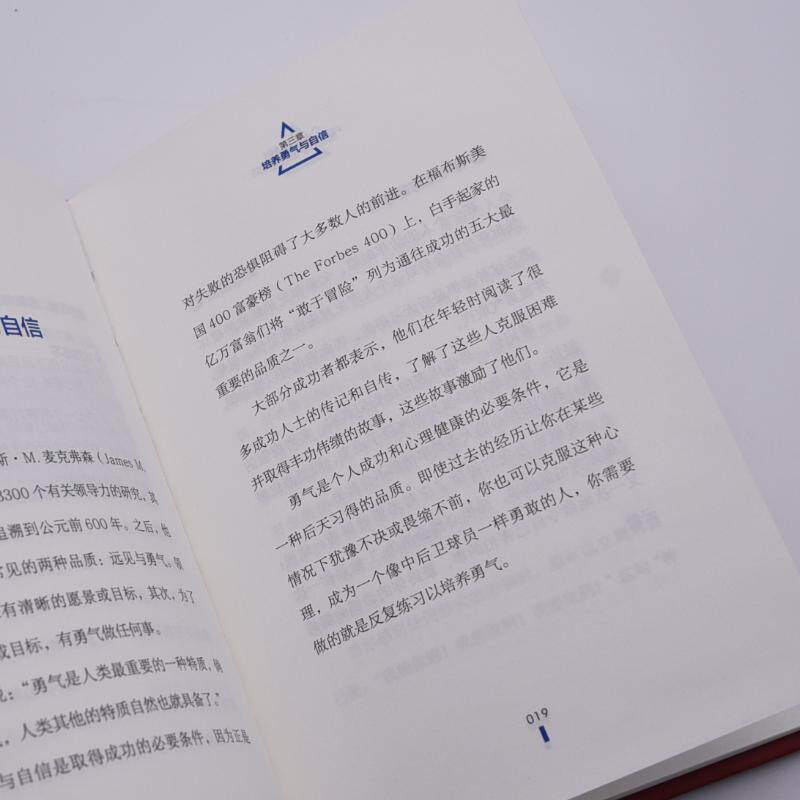 自信
斯·M.麦克弗森（James M.
3300个有关领导力的研究，其
追溯到公元前600年。之后，他
常见的两种品质：远见与勇气。领
有清晰的愿景或目标，其次，为了
或目标，有勇气做任何事。
说：“勇气是人类最重要的一种特质，倘
，人类其他的特质自然也就具备了。”
与自信是取得成功的必要条件，因为正是
第三章
培养勇气与自信
对失败的恐惧阻碍了大多数人的前进。在福布斯美
国400富豪榜（The Forbes 400）上，白手起家的
亿万富翁们将“敢于冒险”列为通往成功的五大最
重要的品质之一。
大部分成功者都表示，他们在年轻时阅读了很
多成功人士的传记和自传，了解了这些人克服困难
并取得丰功伟绩的故事，这些故事激励了他们。
勇气是个人成功和心理健康的必要条件，它是
一种后天习得的品质。即使过去的经历让你在某些
情况下犹豫不决或畏缩不前，你也可以克服这种心
理，成为一个像中后卫球员一样勇敢的人，你需要
做的就是反复练习以培养勇气。
019